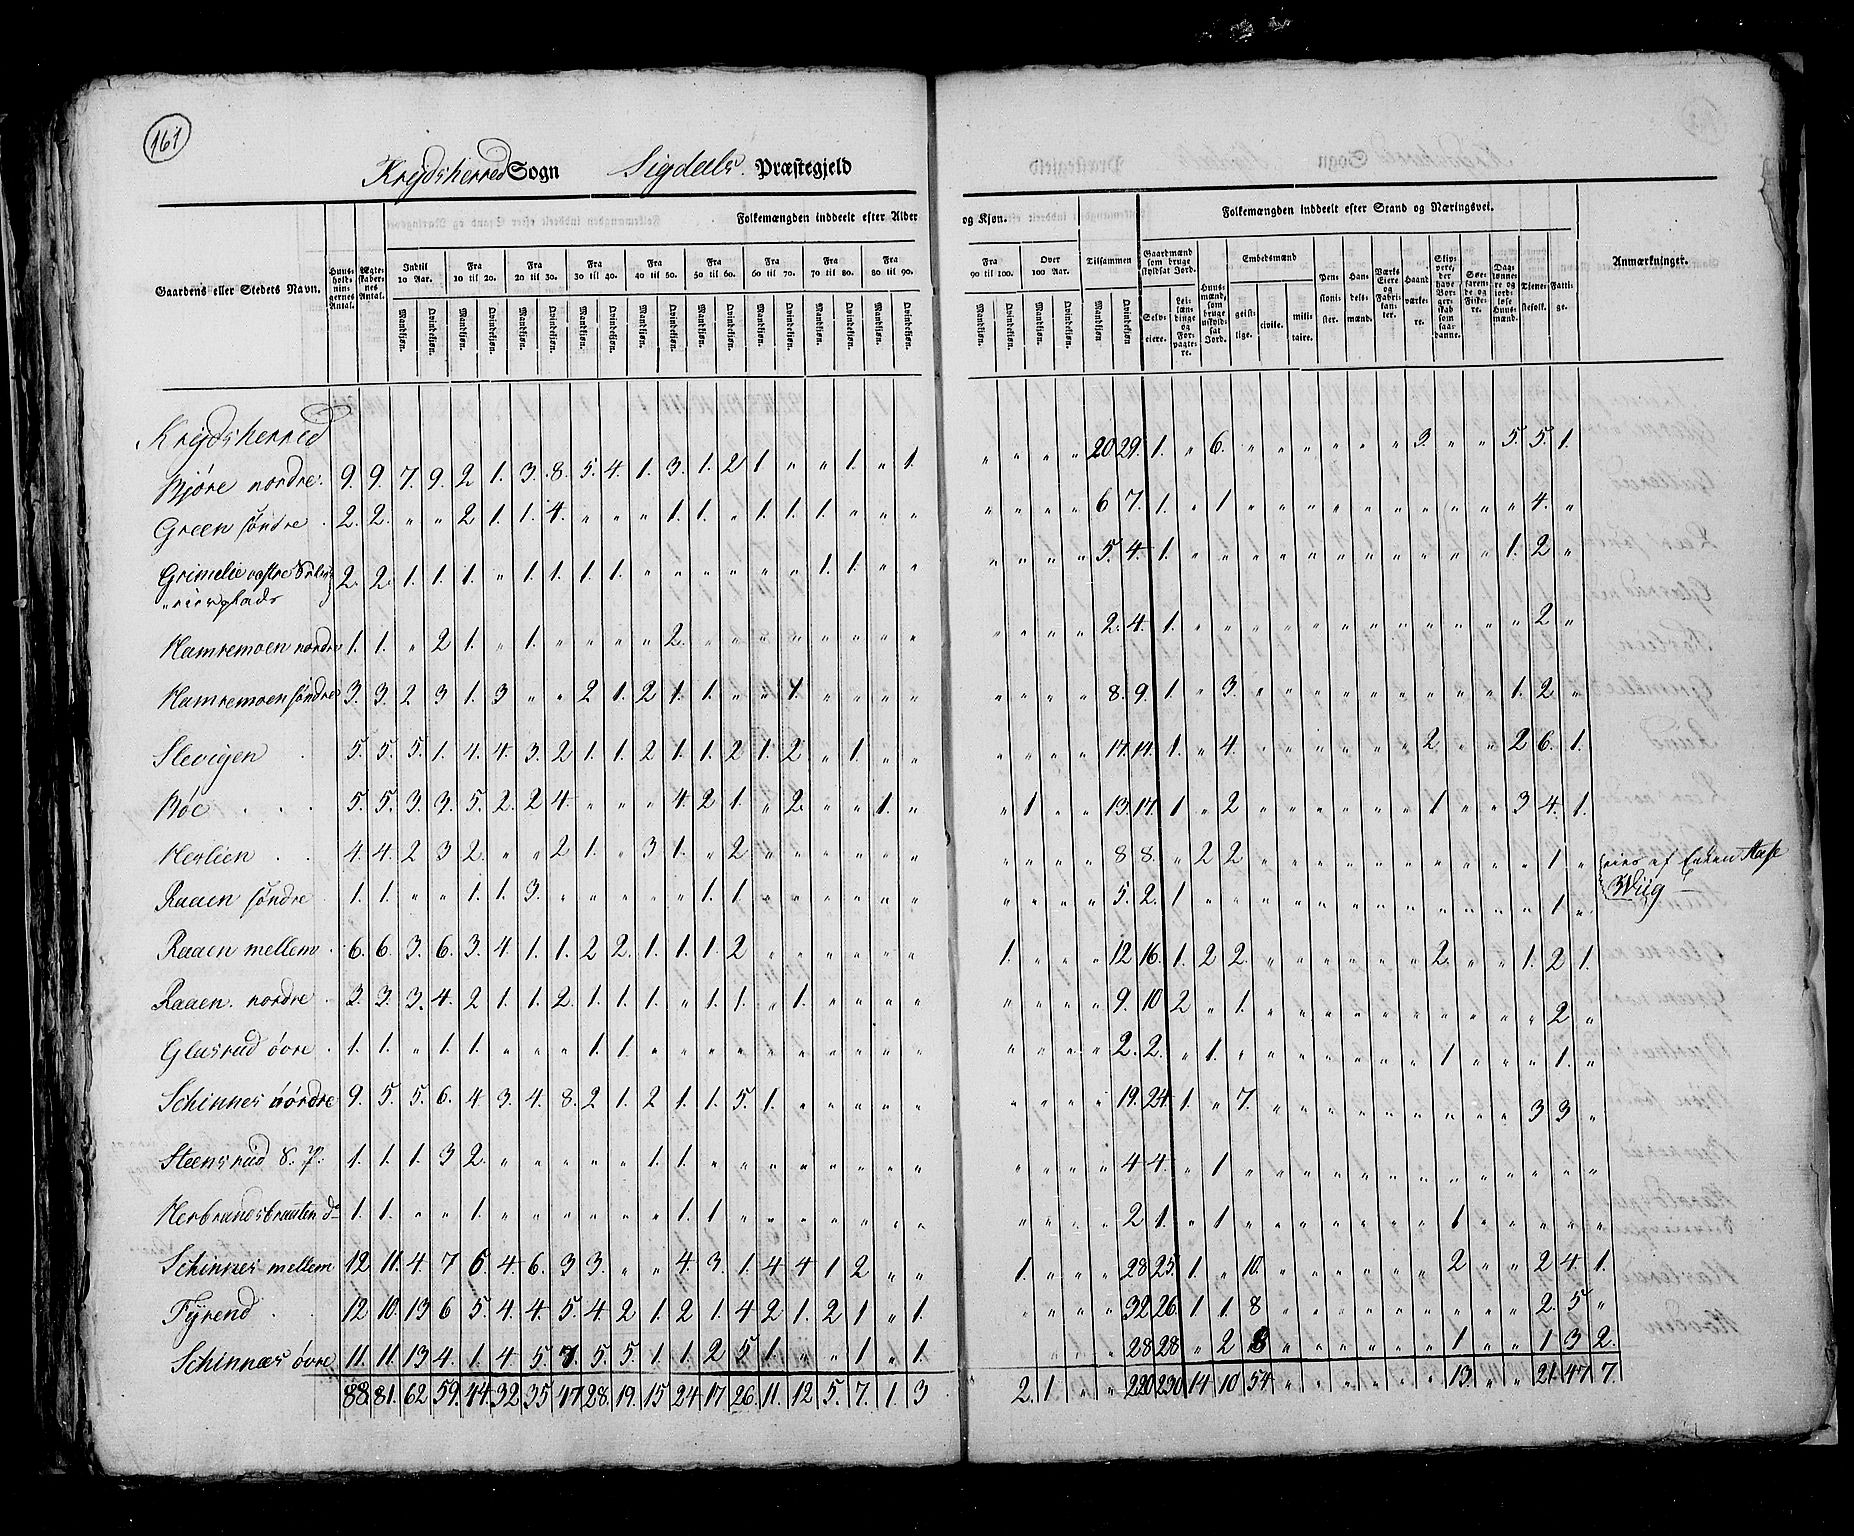 161
Krydsherred Sogn Sigdals Præstegjeld
Folkemængden inddeelt efter Alder og Kjøn.
Folkemængden inddeelt efter Stand og Næringsvei.
Gaardens eller Stedets Navn.
Huusholdningernes Antal.
Ægtefabernes Antal.
Indtil 10 Aar. Fra 10 til 20. Fra 20 til 30. Fra 30 til 40. Fra 40 til 50. Fra 50 til 60. Fra 60 til 70. Fra 70 til 80. Fra 80 til 90. Fra 90 til 100. Over 100 Aar. Tilsammen
Mandkjøn. Qvindekjøn.
Gaardmænd som bruge skyldsat Jord.
Selveiere. Leilændinge og Forpagtere.
Huusmænd, som bruge uskyldsat Jord.
Embedsmænd
geistlige. civile. militaire.
Pensionister.
Handelsmænd.
Værks Eiere og Fabrikanter.
Haandværkere.
Søefarende og Fiskere.
Daglønnere og jordløse Huusmænd.
Tjenestefolk.
Fattige.
Anmærkninger.
Krydsherred
Bjøre nordre. 9. 9. 7. 9. 2 1. 3. 8. 5. 4. 1. 3. 1. 2 1 " " 1. " 1. " " " " 20 29. 1. " 6. " " " " " " 3. " " 5. 5. 1.
Green søndre. 2. 2. " " 2 1. 1. 4. " " " 1. 1. " 1. 1. 1. " " " " " " " 6 7. 1. " 1 " " " " " " " " " " 4. "
Grimelie vestre
2. 2. 1. 1. 1. " 1. 1. 1. 1. " " " " " " 1. 1. " " " " " " 5. 4. 1. " " " " " " " " " " " 1. 2 "
Hamremoen nordre 1. 1. " 2 1. " 1. " " " " 2. " " " " " " " " " " " " 2. 4. 1. " " " " " " " " " " " " 2 "
Hamremoen søndre 3. 3. 2 3 1. 3 " " 2 1. 2 1. 1. " " 1. " " " " " " " " 8. 9. 1. " 3. " " " " " " " " " 1. 2. "
Slevigen 5. 5. 5. 1. 4. 4. 3. 2 1. 1. 2 1. 1. 2 1. 2 " 1. " " " " " " 17. 14. 1. " 4. " " " " " " 2. " " 2 6. 1.
Bøe 5. 5. 3. 3. 5. 2. 2 4. " " " 4. 2 1. " 2. " " 1. " " 1 " " 13. 17. 1 " 2 " " " " " " 1 " " 3 4. 1.
Herlien 4. 4. 2 3 2. " " 2 1. " 3 1. " 2 " " " " " " " " " " 8 8. " 2 2 " " " " " " " " " " 1 " eies af Enken Aase
Wiig
Raaen søndre 1. 1. " " 1. 1. 3. " " " " " 1. 1 " " " " " " " " " " 5. 2. 1 " " " " " " " " " " " " 1 "
Raaen mellem 6. 6. 3. 6. 3. 4. 1. 1. 2 2. 1. 1. 1. 2 " " " " " " 1. " " " 12 16. 1. 2 2. " " " " " " 2. " " 1. 2 1.
Raaen nordre 3. 3. 3. 4. 2 1. 1. 2. 1. 1. 1. " 1. 1. " 1. " " " " " " " " 9. 10 2 " 1. " " " " " " " " " " 2 "
Glasrud øvre 1. 1. " 1. 1. " " " 1. 1. " " " " " " " " " " " " " " 2. 2. " 1 " " " " " " " 1 " " " 1. "
Schinnes nordre 9. 5. 5. 6. 4. 3. 4. 8. 2 1. 2 1. 1. 5. 1. " " " " " " " " " 19. 24. 1. " 7. " " " " " " " " " 3 3. "
Steensrud S. P. 1. 1. 1. 3 2. " " " " " 1. 1. " " " " " " " " " " " " 4 4. " 1 " " " " " " " " " " " " "
Herbrandsbraaten do 1. 1. " " 1. " " " " " " 1. 1. " " " " " " " " " " " 2 1. " 1 " " " " " " " 1 " " " " "
Schinnes mellem 12 11. 4. 7 6. 4. 6. 3 3. " " 4. 3. 1. 4 4 1 2 " " 1. " " " 28 25. 1. " 10. " " " " " " 2 " " 2 4. 1.
Fyrend 12 10. 13 6 5. 4. 4. 5. 4. 2 1. 2 1. 4 2. 1. 2 1 " 1 " " " " 32 26. 1 1. 8 " " " " " " " " " 2. 5 "
Schinnæs øvre 11. 11. 13 4. 1. 4 5. 7. 5. 5. 1. 1. 2 5. 1. " " 1 " 1. " " " " 28 28 " 2 8 " " " " " " 1 " " 1 3 2.
88. 81. 62 59. 44. 32 35 47 28. 19. 15. 24 17 26. 11. 12 5. 7. 1. 3 2. 1 " " 220 230 14 10 54 " " " " " " 13 " " 21. 47 7.